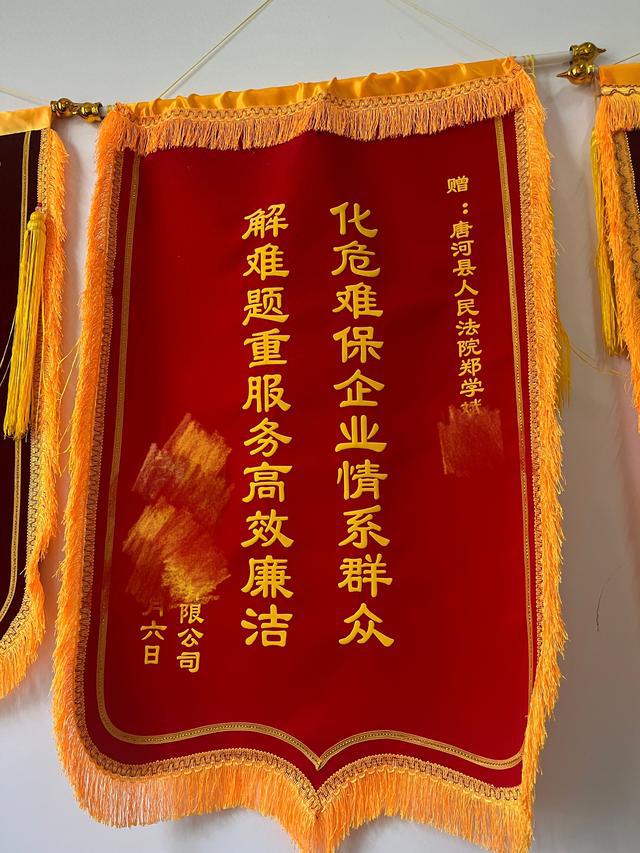 赠：唐河县人民法院郑学斌
化危难保企业情系群众
解难题重服务高效廉洁
限公司
月六日